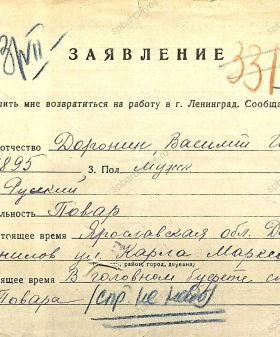 31/VII
ЗАЯВЛЕНИЕ
337
шить мне возвратиться на работу в г. Ленинград. Сообща
отчество Доронин, Василий
895 3. Пол Мужс
Русский
льность Повар
стоящее время Ярославская обл. Д
нилов ул. Карла Маркс
(район, город, деревня)
стоящее время В головном буфете с
Повара (спр. не надо)